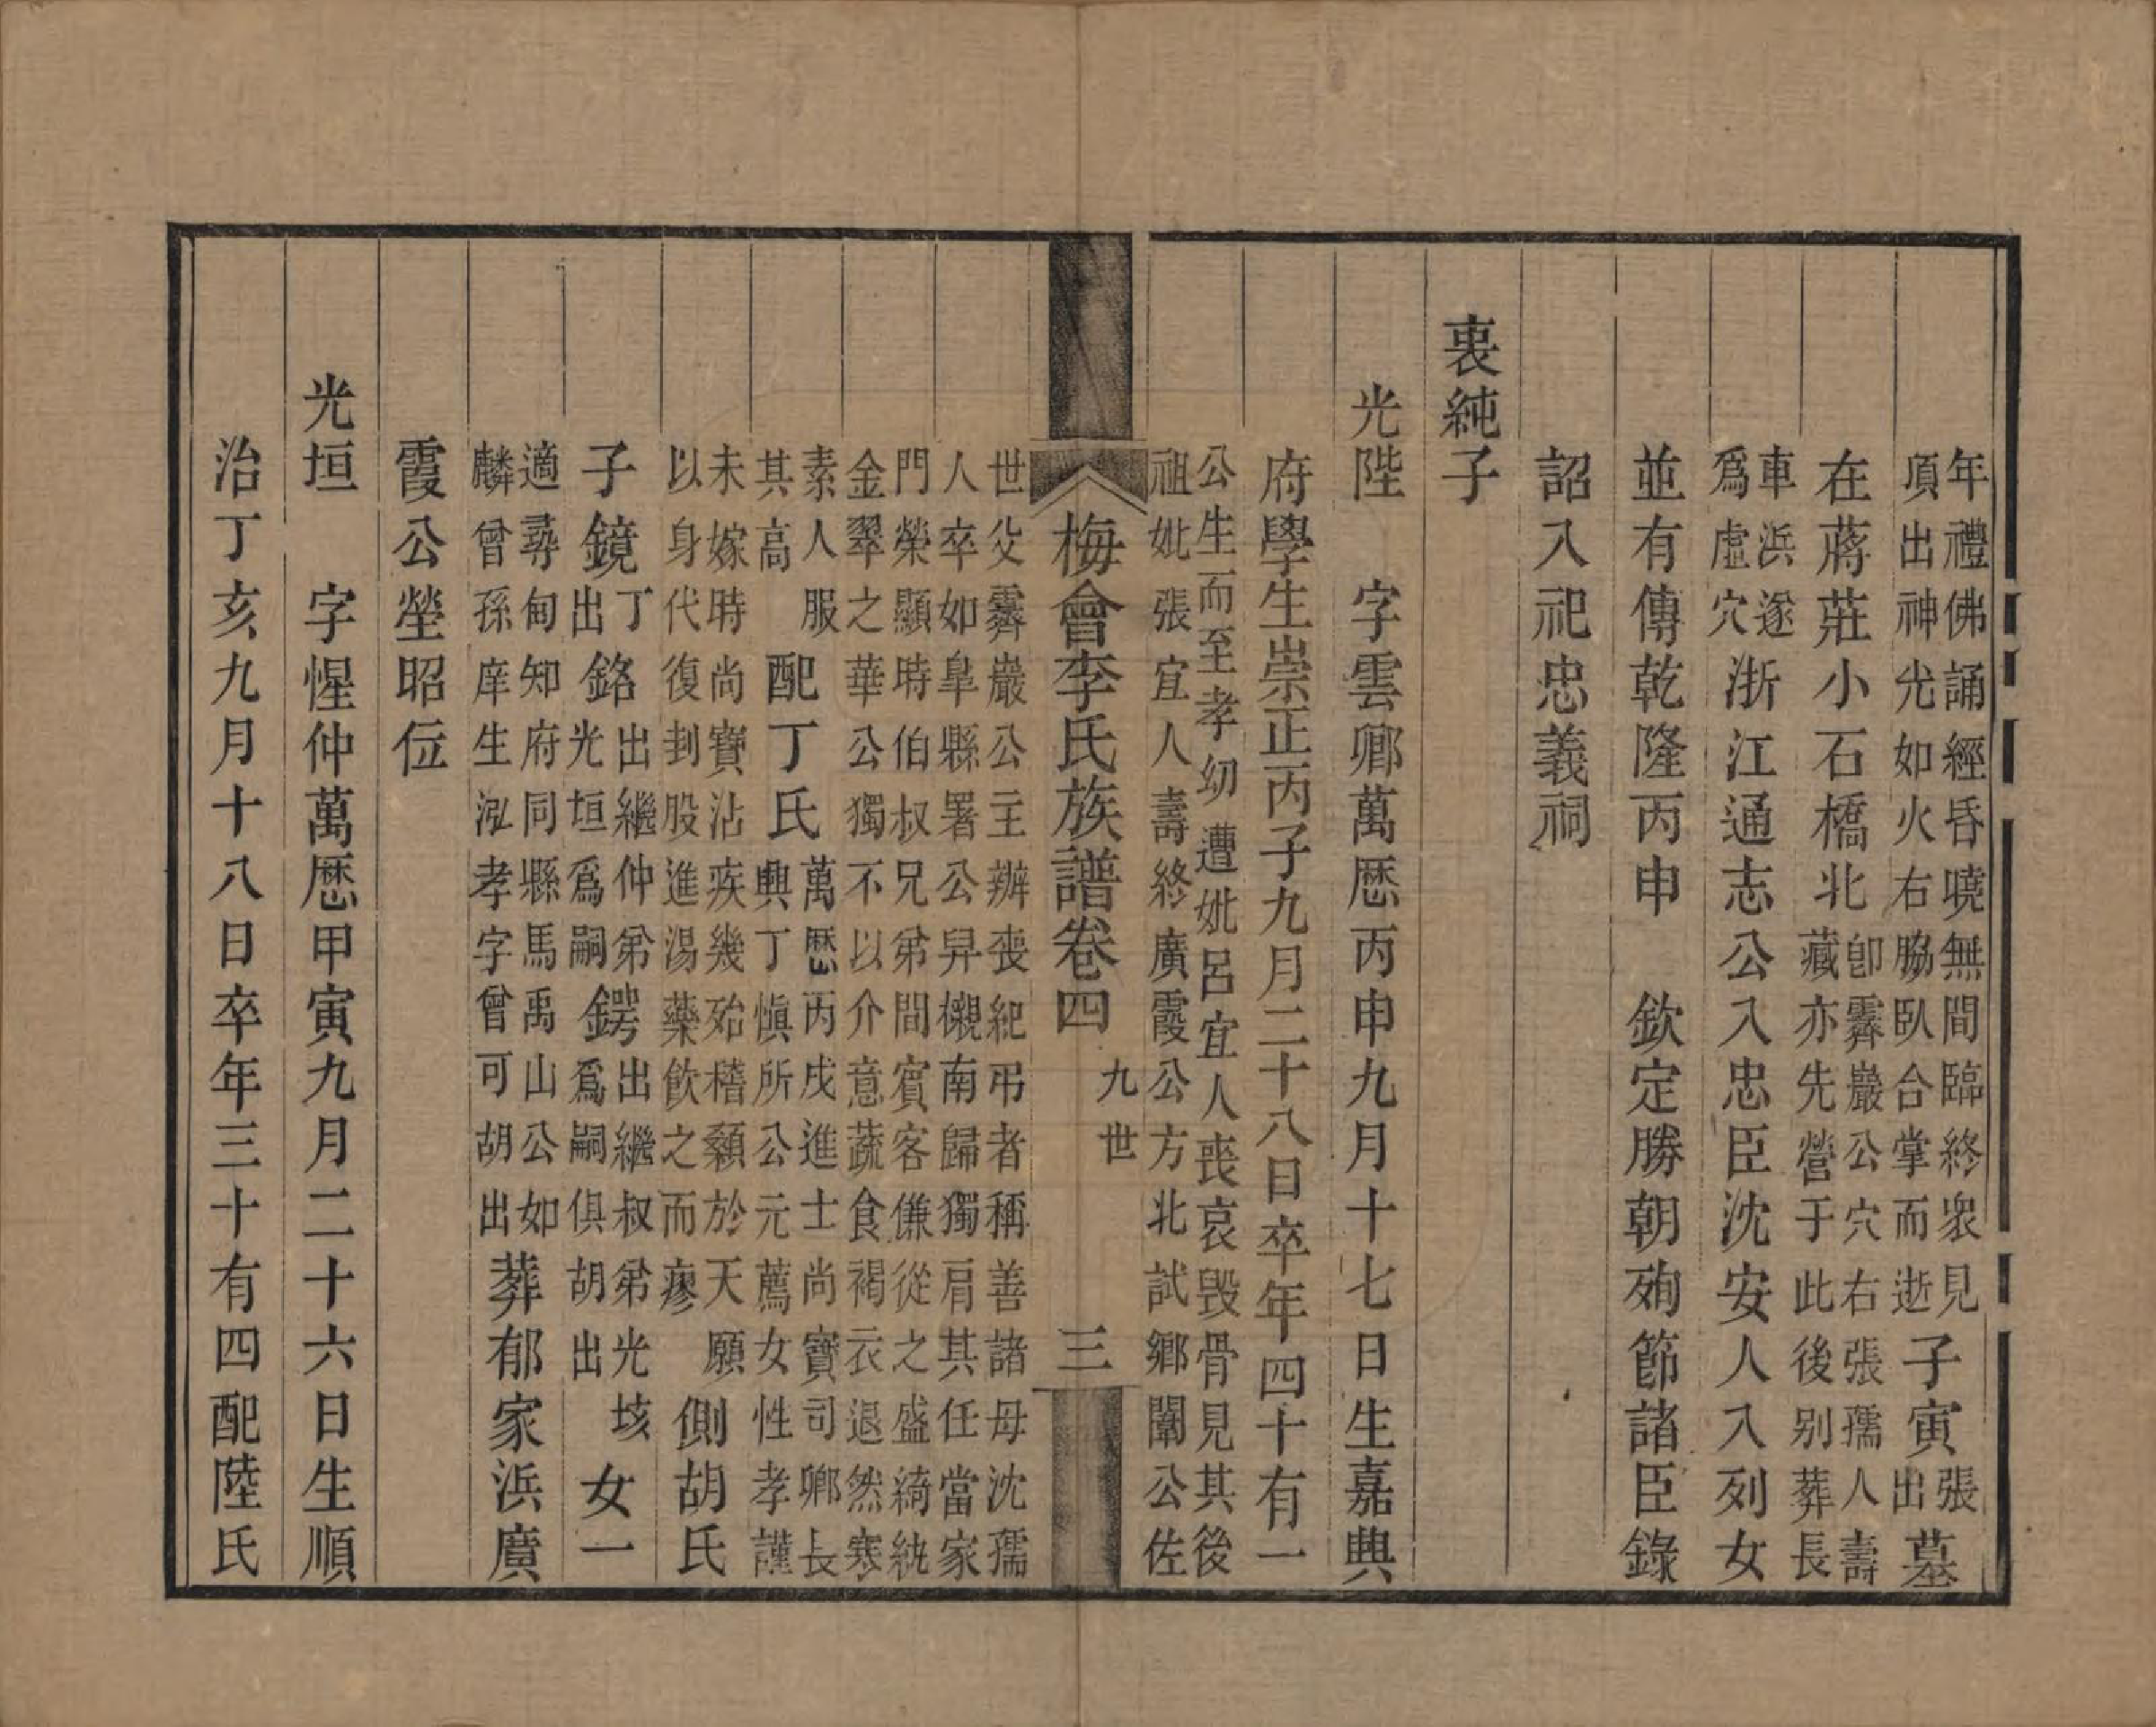 年禮佛誦經昏曉無間臨終衆見
項出神光如火右脇臥合掌而逝
子寅
張
出
墓
在蔣莊小石橋北
卽霽巖公穴右張孺人壽
藏亦先營于此後别葬長
車浜遂
爲虛穴
浙江通志公入忠臣沈安人入列女
並有傳乾隆丙申 欽定勝朝殉節諸臣錄
詔入祀忠義祠
衷純子
光陛 字雲卿萬歷丙申九月十七日生嘉興
府學生崇正丙子九月二十八日卒年四十有一
公生而至孝幼遭妣呂宜人喪哀毀骨見其後
祖妣張宜人壽終廣霞公方北試鄉闈公佐
梅會李氏族譜卷四 九世 三
世父霽巖公主辦喪紀弔者稱善諸母沈孺
人卒如臯縣署公舁櫬南歸獨肩其任當家
門榮顯時伯叔兄弟間賓客傔從之盛綺紈
金翠之華公獨不以介意蔬食褐衣退然寒
素人服
其高
配丁氏
萬歷丙戌進士尚寶司卿長
興丁愼所公元薦女性孝謹
未嫁時尚寶沾疾幾殆稽顙於天願
以身代復刲股進湯藥飲之而瘳
側胡氏
子鏡
丁
出
銘
出繼仲弟
光垣爲嗣
鍔
出繼叔弟光垓
爲嗣俱胡出
女一
適尋甸知府同縣馬禹山公如
麟曾孫庠生泓孝字曾可胡出
葬郁家浜廣
霞公塋昭位
光垣 字惺仲萬歷甲寅九月二十六日生順
治丁亥九月十八日卒年三十有四配陸氏